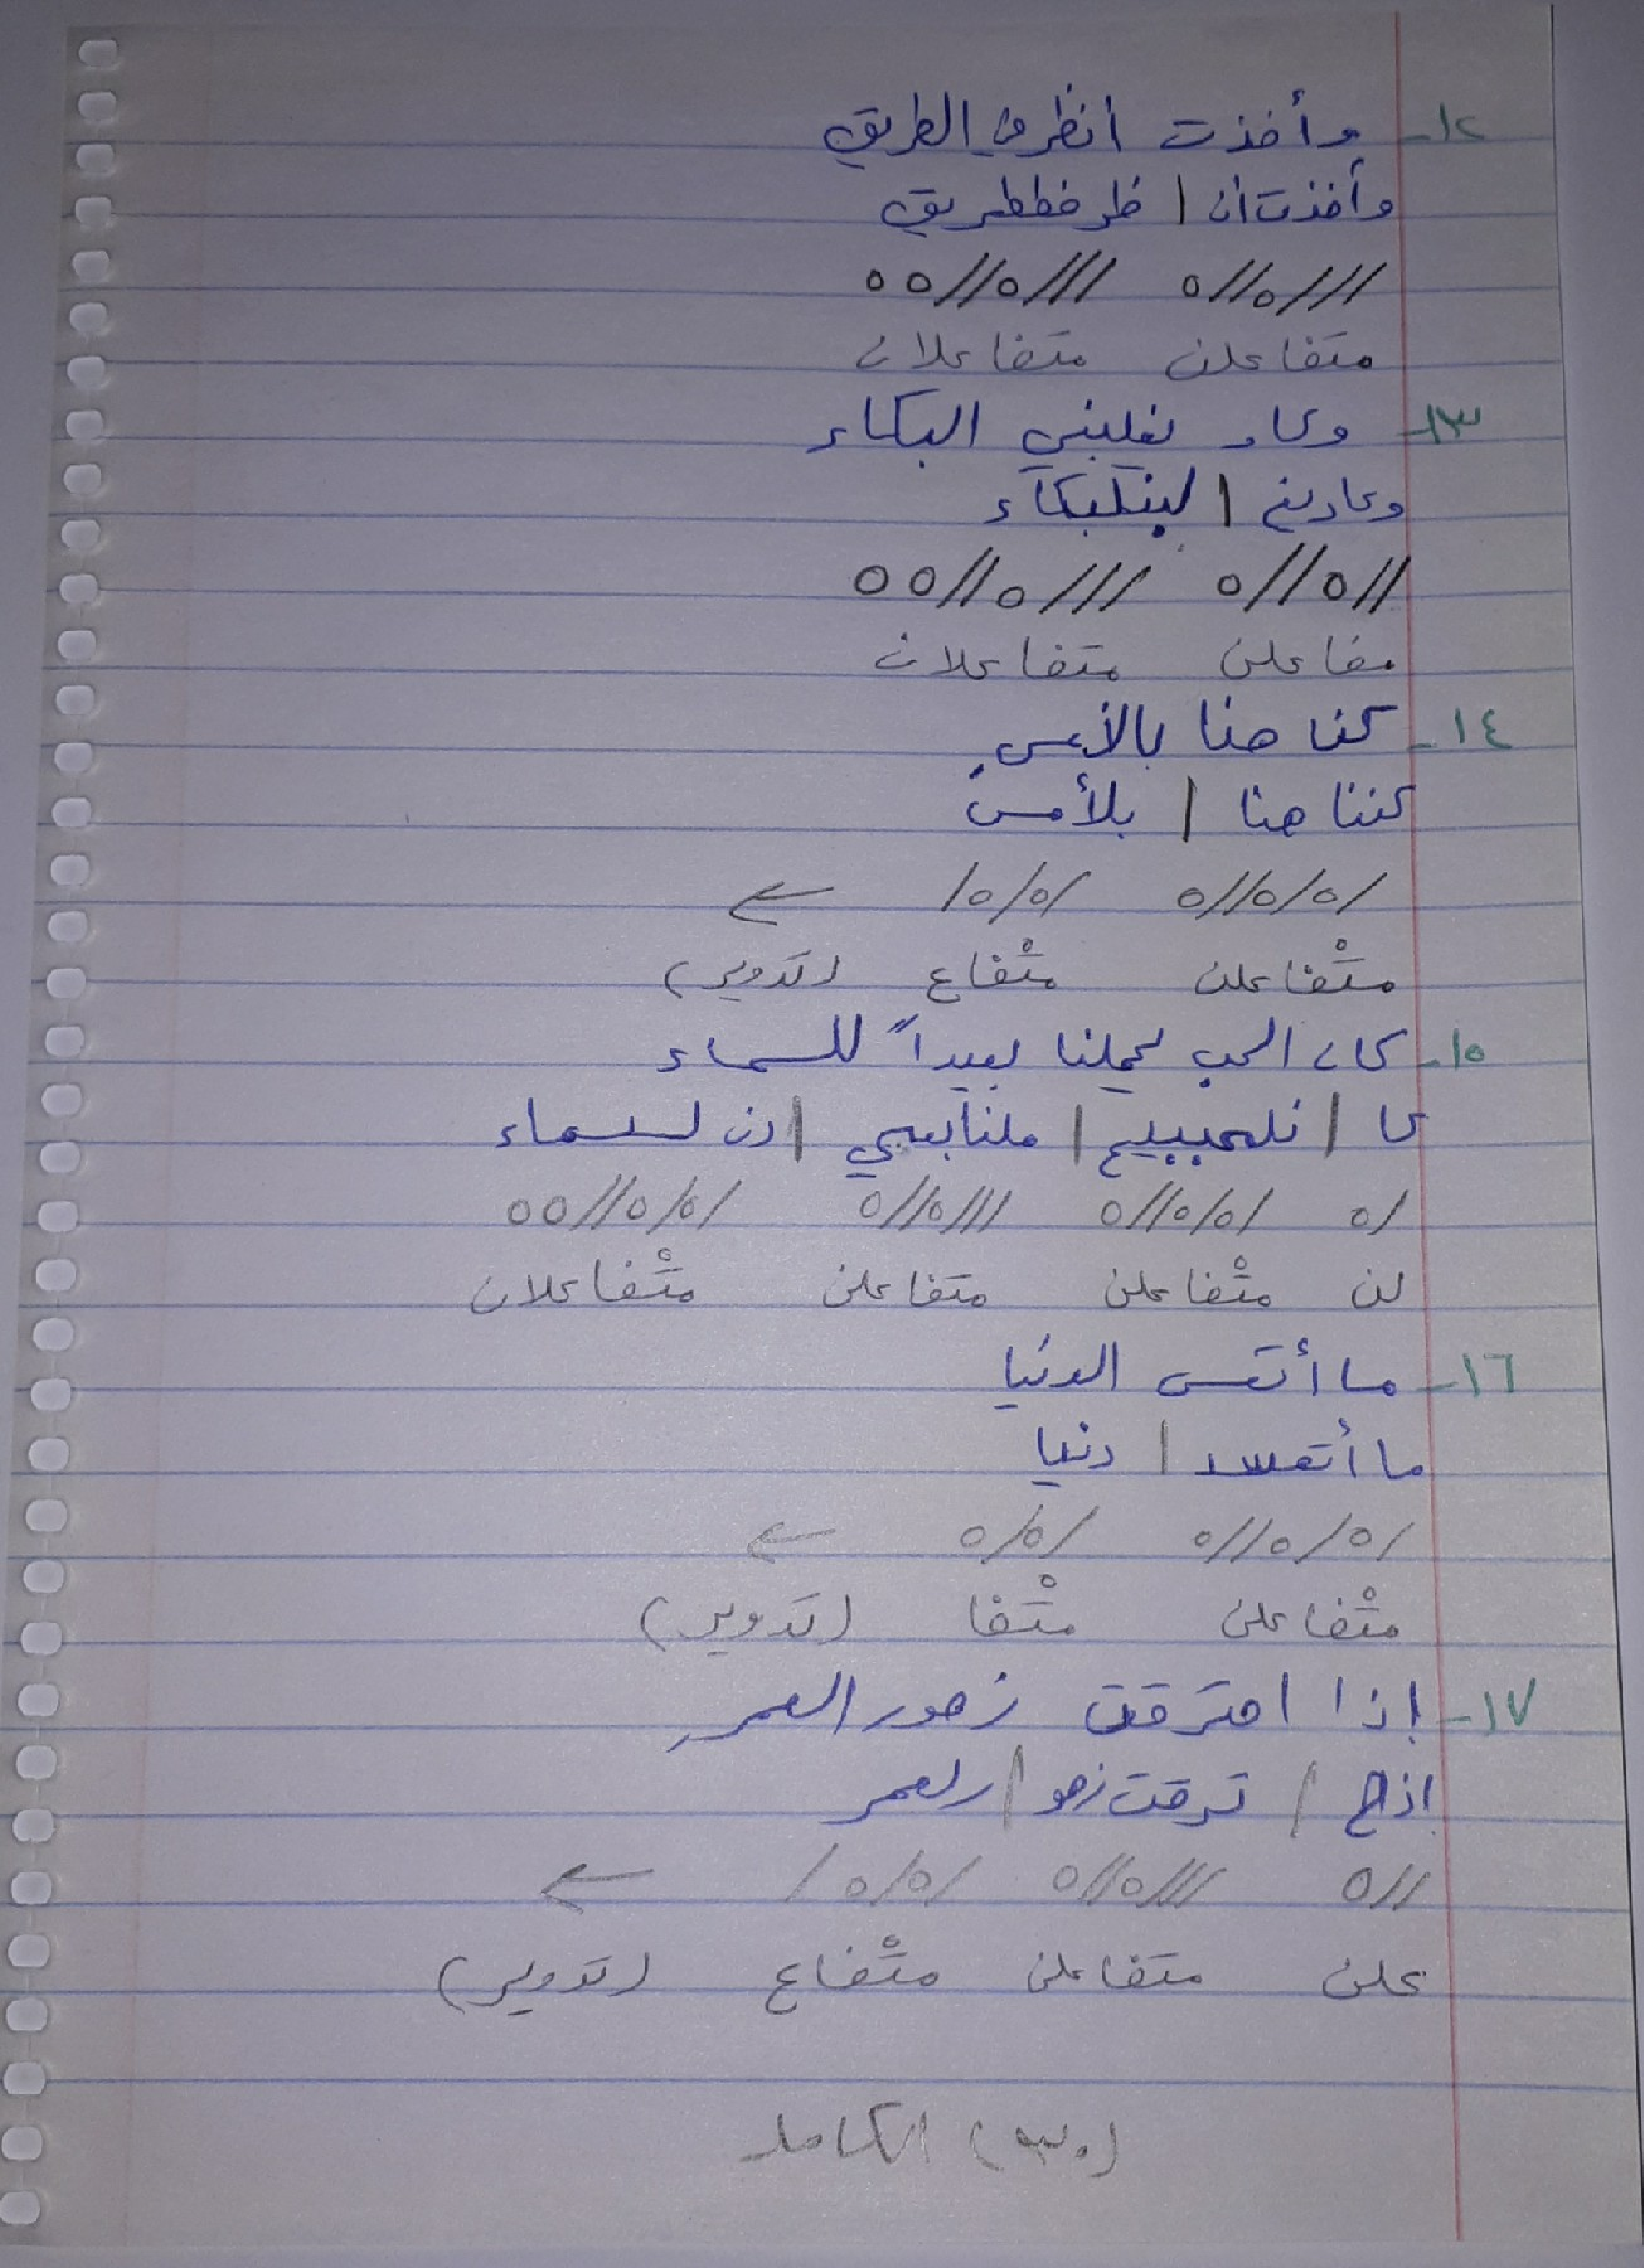 ١٢- وأخذت أنظر في الطريق
وأخذت أن | ظر فططريق
///٥//٥ ///٥//٥٥
متفاعلن متفاعلان
١٣- وكاد يغلبني البكاء
وكاد يغـ | لبنلبكاء
//٥//٥ ///٥//٥٥
مفاعلن متفاعلان
١٤- كنا هنا بالأمسِ
كننا هنا | بلأمسِ
/٥/٥//٥ /٥/٥/ ←
متْفاعلن متْفاع (تدوير)
١٥- كان الحب يحملنا بعيداً للسماء
كا | نلحببيح | ملنا بعيـ | دن لسسماء
/٥ /٥/٥//٥ ///٥//٥ /٥/٥//٥٥
لن متْفاعلن متفاعلن متْفاعلان
١٦- ما أتعس الدنيا
ما أتعسد | دنيا
/٥/٥//٥ /٥/٥ ←
متْفاعلن متْفا (تدوير)
١٧- إذا احترقت زهور العمرِ
إذح | ترقت زهو | رلعمر
//٥ ///٥//٥ /٥/٥/ ←
علن متفاعلن متْفاع (تدوير)
(٣٠) الكامل